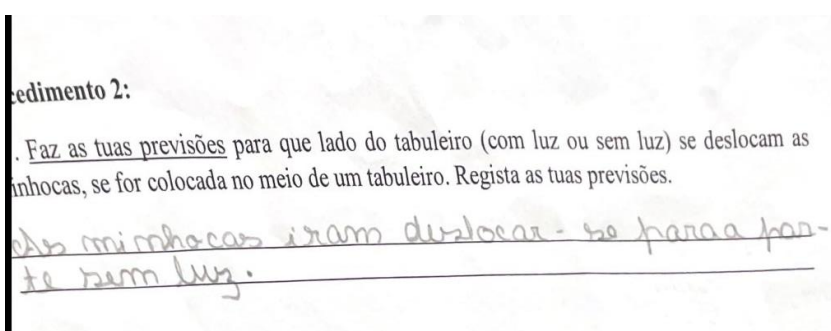 cedimento 2:
. Faz as tuas previsões para que lado do tabuleiro (com luz ou sem luz) se deslocam as
inhocas, se for colocada no meio de um tabuleiro. Regista as tuas previsões.
As minhocas iram deslocar-se para a par-
te sem luz.